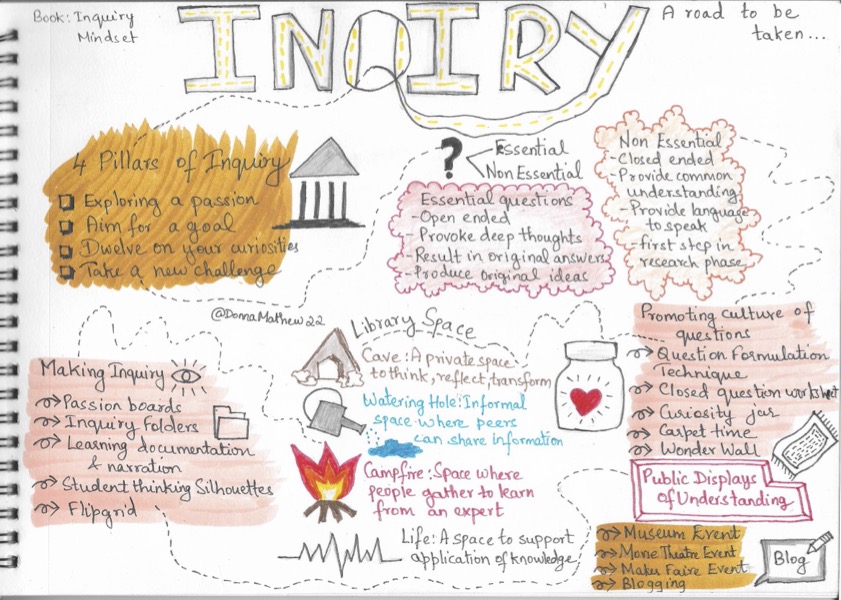 Book: Inquiry
Mindset
INQIRY
A road to be
taken...
4 Pillars of Inquiry
Exploring a passion
Aim for a goal
Dwelve on your curiosities
Take a new challenge
?
Essential
Non Essential
Essential questions
- Open ended
- Provoke deep thoughts
- Result in original answers
- Produce original ideas
Non Essential
- Closed ended
- Provide common
understanding
- Provide language
to speak
- first step in
research phase
@DonnaMathew22
Library Space
Cave: A private space
to think, reflect, transform
Watering Hole: Informal
space where peers
can share information
Campfire: Space where
people gather to learn
from an expert
Life: A space to support
application of knowledge
Making Inquiry
Passion boards
Inquiry Folders
Learning documentation
& narration
Student thinking Silhouettes
Flipgrid
Promoting culture of
questions
Question Formulation
Technique
Closed question worksheet
Curiosity jar
Carpet time
Wonder Wall
Public Displays
of Understanding
Museum Event
Movie Theatre Event
Maker Faire Event
Blogging
Blog